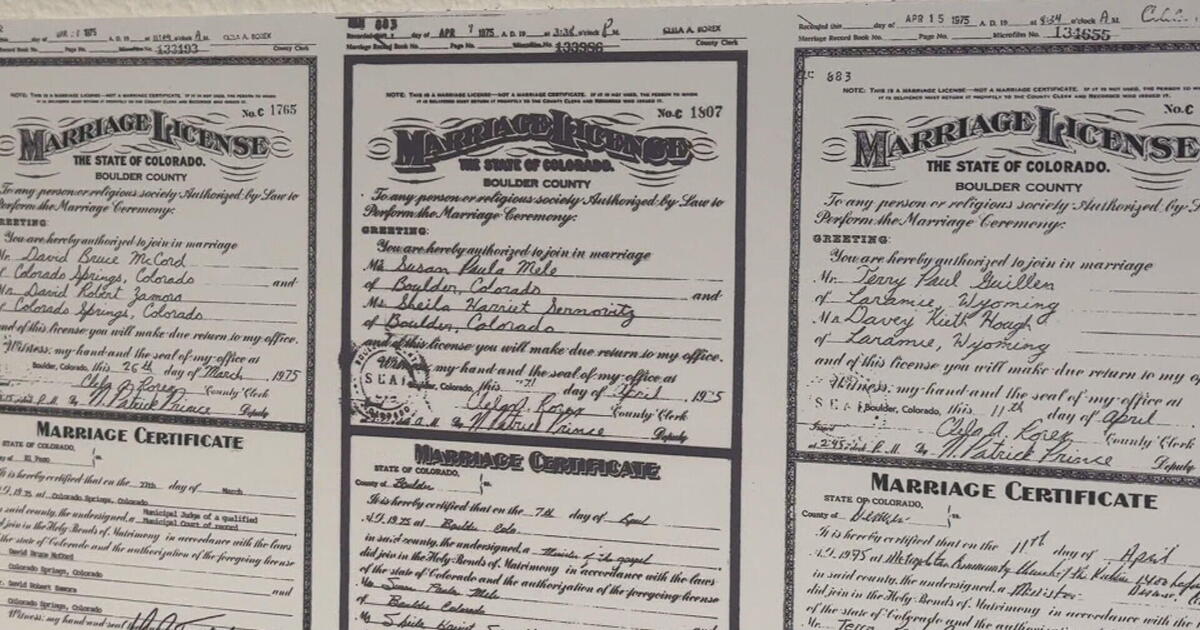 day of MAR 26 1975 A. D. 19 at o'clock A M.
Record Book No. Page No. Microfilm No. 133193
CLELA A. ROREX
County Clerk
NOTE: THIS IS A MARRIAGE LICENSE—NOT A MARRIAGE CERTIFICATE. IF IT IS NOT USED, THE PERSON TO WHOM
IT IS DELIVERED MUST RETURN IT PROMPTLY TO THE COUNTY CLERK AND RECORDER WHO ISSUED IT.
No. C 1765
MARRIAGE LICENSE
THE STATE OF COLORADO.
BOULDER COUNTY
To any person or religious society Authorized by Law to
Perform the Marriage Ceremony:
GREETING:
You are hereby authorized to join in marriage
Mr. David Bruce McCord
of Colorado Springs, Colorado and
Mr. David Robert Zamora
of Colorado Springs, Colorado
and of this license you will make due return to my office.
Witness: my hand and the seal of my office at
Boulder, Colorado, this 26th day of March, 1975
Clela A. Rorex County Clerk
P. M. By N. Patrick Prince Deputy
MARRIAGE CERTIFICATE
STATE OF COLORADO,
of El Paso ss.
It is hereby certified that on the 27th day of March
A.D. 1975 at Colorado Springs, Colorado
in said county, the undersigned, a Municipal Judge of a qualified
Municipal Court of record
did join in the Holy Bonds of Matrimony in accordance with the laws
of the state of Colorado and the authorization of the foregoing license
David Bruce McCord
Colorado Springs, Colorado
and
David Robert Zamora
Colorado Springs, Colorado
Witness: my hand and seal
883
day of APR 7 1975 A. D. 19 at 3:36 o'clock P M.
Marriage Record Book No. Page No. Microfilm No. 133996
CLELA A. ROREX
County Clerk
NOTE: THIS IS A MARRIAGE LICENSE—NOT A MARRIAGE CERTIFICATE. IF IT IS NOT USED, THE PERSON TO WHOM
IT IS DELIVERED MUST RETURN IT PROMPTLY TO THE COUNTY CLERK AND RECORDER WHO ISSUED IT.
No. C 1807
MARRIAGE LICENSE
THE STATE OF COLORADO.
BOULDER COUNTY
To any person or religious society Authorized by Law to
Perform the Marriage Ceremony:
GREETING:
You are hereby authorized to join in marriage
Ms Susan Paula Mele
of Boulder, Colorado and
Ms Sheila Harriet Sernovitz
of Boulder, Colorado
and of this license you will make due return to my office.
Witness my hand and the seal of my office at
SEAL
Boulder, Colorado, this 7 day of April, 1975
Clela A. Rorex County Clerk
M. By N. Patrick Prince Deputy
MARRIAGE CERTIFICATE
STATE OF COLORADO,
County of Boulder ss.
It is hereby certified that on the 7th day of April
A.D. 1975 at Boulder Colo.
in said county, the undersigned, a Minister of the gospel
did join in the Holy Bonds of Matrimony in accordance with the laws
of the state of Colorado and the authorization of the foregoing license
Ms. Susan Paula Mele
of Boulder Colorado
Ms Sheila
Recorded this day of APR 15 1975 A. D. 19 at 8:34 o'clock A M.
Marriage Record Book No. Page No. Microfilm No. 134655
883
NOTE: THIS IS A MARRIAGE LICENSE—NOT A MARRIAGE CERTIFICATE. IF IT IS NOT USED, THE PERSON TO
IT IS DELIVERED MUST RETURN IT PROMPTLY TO THE COUNTY CLERK AND RECORDER WHO ISSUED IT.
No. C
MARRIAGE LICENSE
THE STATE OF COLORADO.
BOULDER COUNTY
To any person or religious society Authorized by
Perform the Marriage Ceremony:
GREETING:
You are hereby authorized to join in marriage
Mr. Terry Paul Guillen
of Laramie, Wyoming
Mr Davey Kieth Hough
of Laramie, Wyoming
and of this license you will make due return to my
Witness: my hand and the seal of my office at
Boulder, Colorado, this 11th day of April
Clela A. Rorex County Clerk
at 2:45 P. M. By N. Patrick Prince Deputy
MARRIAGE CERTIFICATE
STATE OF COLORADO,
County of ss.
It is hereby certified that on the 11th day of April
A.D. 1975 at Metropolitan Community Church of the Rockies
in said county, the undersigned, a Minister
did join in the Holy Bonds of Matrimony in accordance with the
of the state of Colorado and the
Mr. Terry